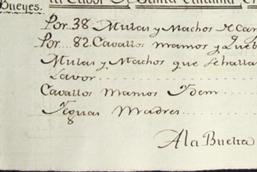 Bueyes.
Por 38 Mulas y Machos
Por 82 Cavallos mamos y
Mulas y Machos que se hallan
Lavor
Cavallos Mamos Ydem
Yeguas Madres
A la Buelta